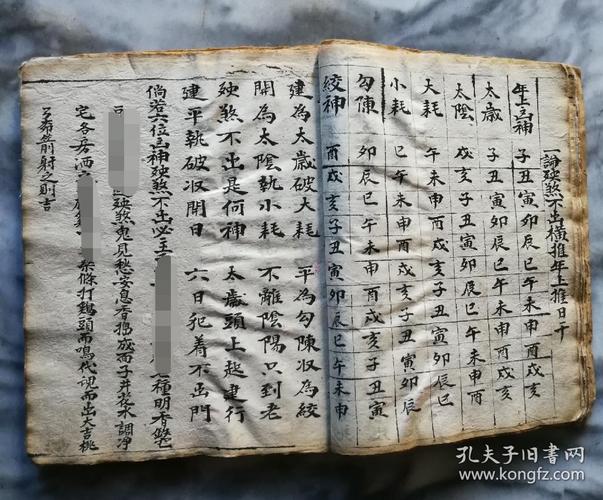 一論殃煞不出橫推年上推日干
年上凶神 子丑寅卯辰巳午未申酉戌亥
太歲 子丑寅卯辰巳午未申酉戌亥
太陰 戌亥子丑寅卯辰巳午未申酉
大耗 午未申酉戌亥子丑寅卯辰巳
小耗 巳午未申酉戌亥子丑寅卯辰
勾陳 卯辰巳午未申酉戌亥子丑寅
絞神 酉戌亥子丑寅卯辰巳午未申
建為太歲破大耗 平為勾陳收為絞
開為太陰執小耗 不離陰陽只到老
殃煞不出是何神 太歲頭上起建行
建平執破收開日 六日犯着不出門
倘若六位凶神殃煞不出必主 種明香
殃煞鬼見愁安息香搗成面子井花水調淨
宅各房洒 條打鷄頭而鳴代魂而出大吉桃
弓 箭射之則吉
孔夫子旧书网
www.kongfz.com